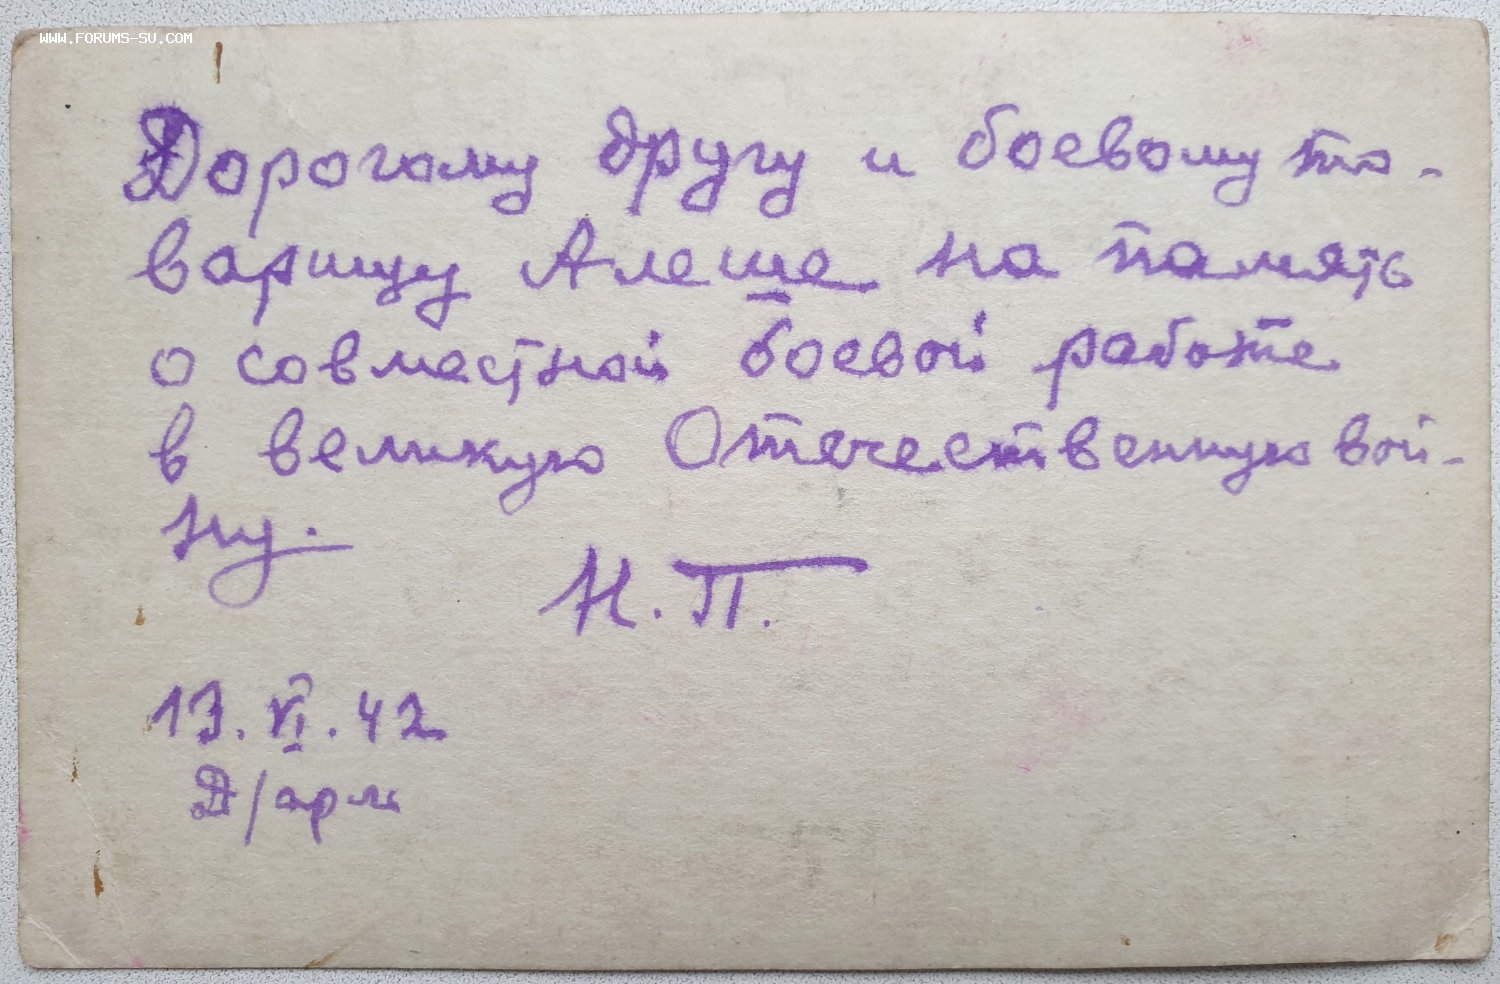 WWW.FORUMS-SU.COM
Дорогому другу и боевому то-
варищу Алеше на память
о совместной боевой работе
в великую Отечественную вой-
ну.
Н.П.
13.VI.42
Д/арм